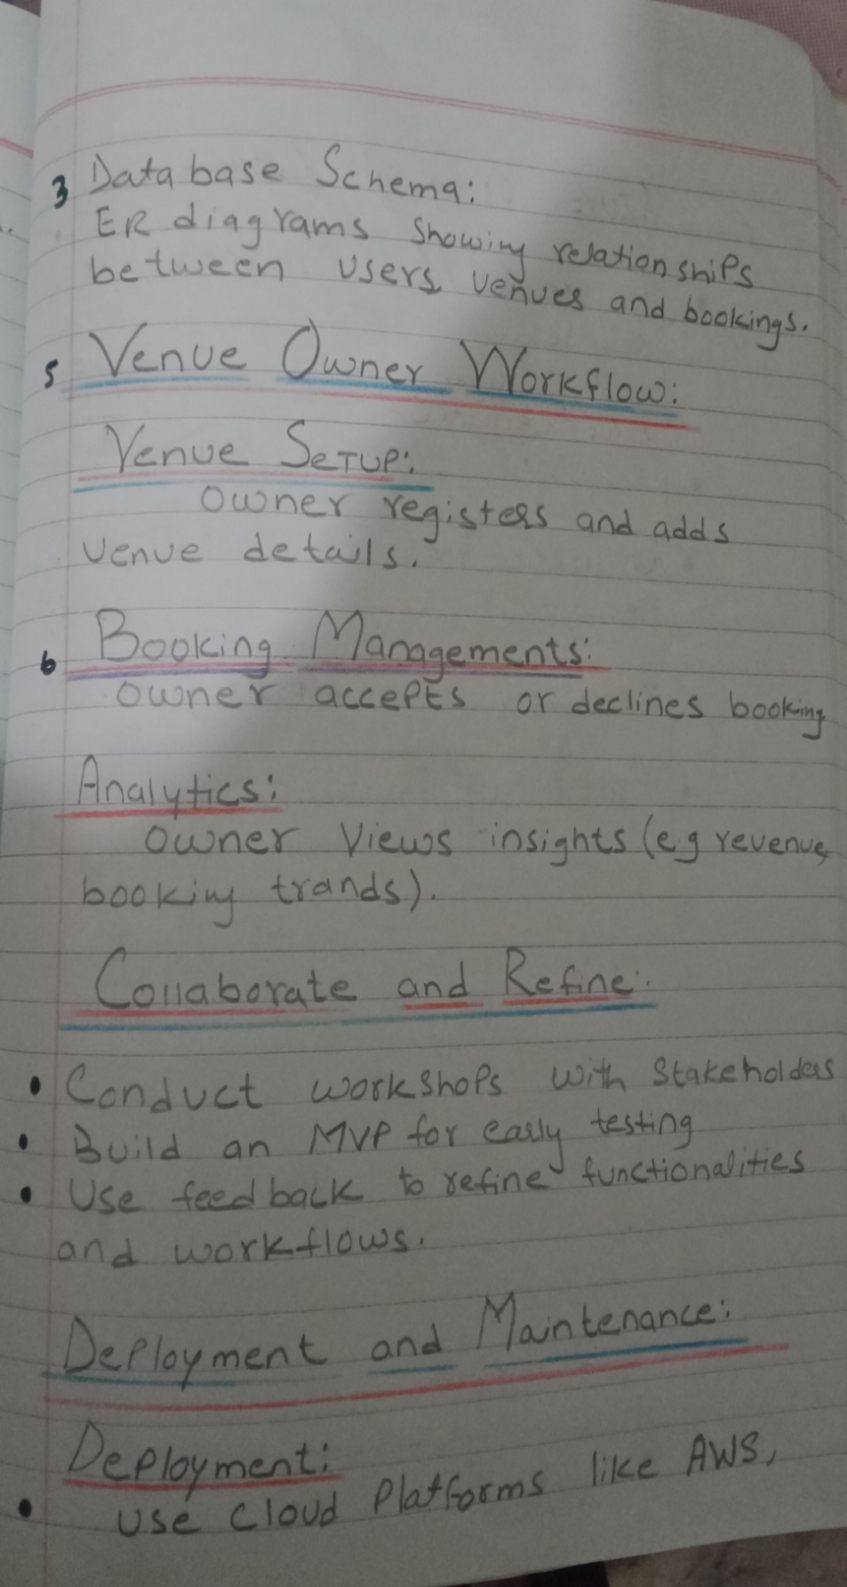 3 Database Schema:
ER diagrams showing relationships
between users, venues and bookings.
5 Venue Owner Workflow:
Venue SeTUP:
owner registers and adds
venue details.
6 Booking Managements:
owner accepts or declines booking
Analytics:
owner views insights (e.g revenue,
booking trands).
Collaborate and Refine:
• Conduct workshops with Stakeholders
• Build an MVP for early testing
• Use feedback to refine functionalities
and workflows.
Deployment and Maintenance:
Deployment:
• use cloud Platforms like AWS,